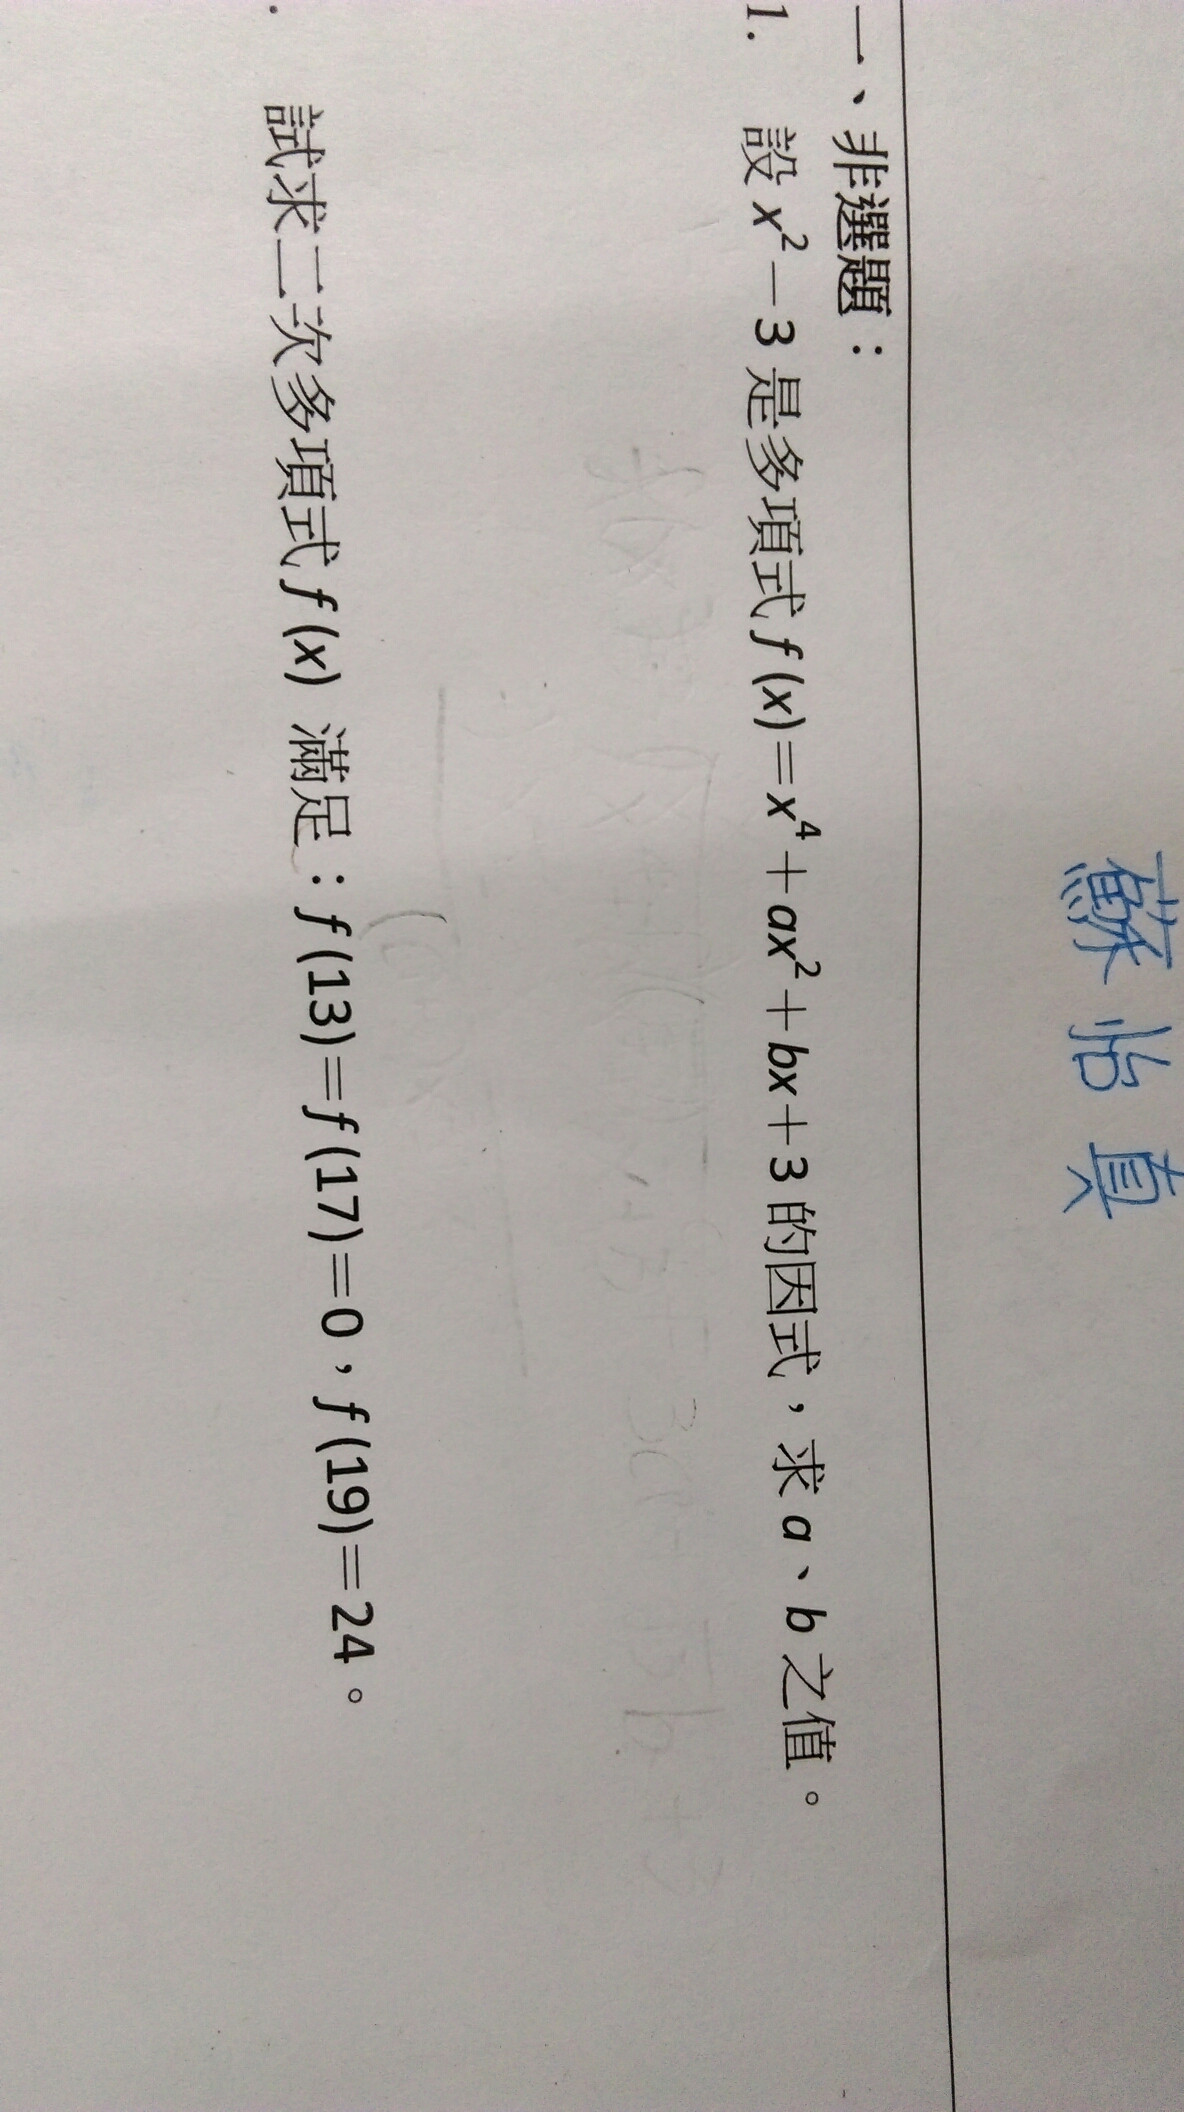 蘇怡真
一、非選題：
1. 設 x²－3 是多項式 f(x)＝x⁴＋ax²＋bx＋3 的因式，求 a、b 之值。
. 試求二次多項式 f(x) 滿足：f(13)＝f(17)＝0，f(19)＝24。